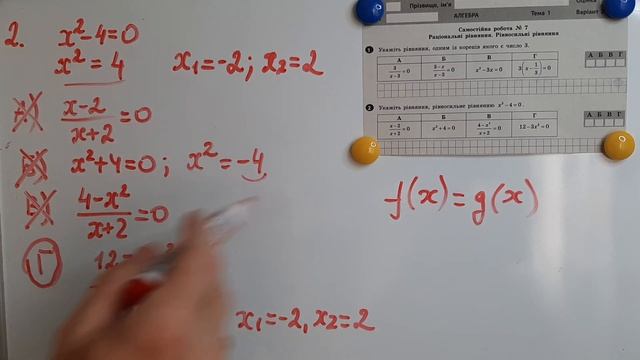 2. x²-4=0
x²=4 x₁=-2; x₂=2
А) (x-2)/(x+2)=0
Б) x²+4=0; x²=-4
В) (4-x²)/(x+2)=0
Г) 12
x₁=-2, x₂=2
f(x)=g(x)
Прізвище, ім'я
АЛГЕБРА Тема 1 Варіант
Самостійна робота № 7
Раціональні рівняння. Рівносильні рівняння
1 Укажіть рівняння, одним із коренів якого є число 3.
А Б В Г
3/(x-3)=0 (3-x)/(x-3)=0 x²-3x=0 3(x-1/3)=0
А Б В Г
2 Укажіть рівняння, рівносильне рівнянню x²-4=0.
А Б В Г
(x-2)/(x+2)=0 x²+4=0 (4-x²)/(x+2)=0 12-3x²=0
А Б В Г